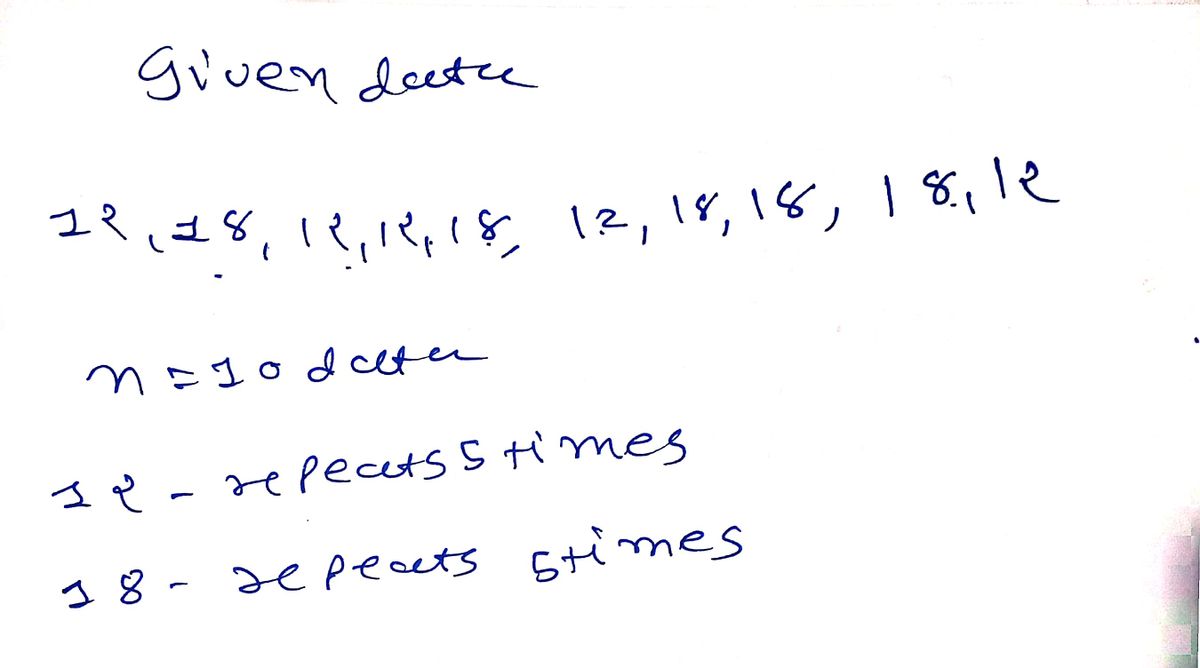 Given data
12, 18, 12, 12, 18, 12, 18, 18, 18, 12
n = 10 data
12 - repeats 5 times
18 - repeats 5 times